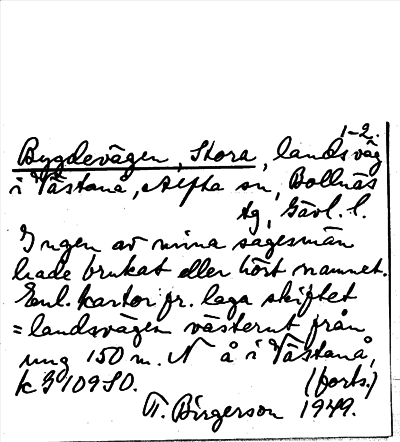 1-2.
Bygdevägen, Stora, landsväg
i Västanå, Alfta sn, Bollnäs
tg, Gävl. l.
Ingen av mina sagesmän
hade brukat eller hört namnet.
Enl. kartor fr. laga skiftet
= landsvägen västerut från
ung 150 m. N å i Västanå,
k 3109 SO. (forts.)
T. Birgerson 1949.